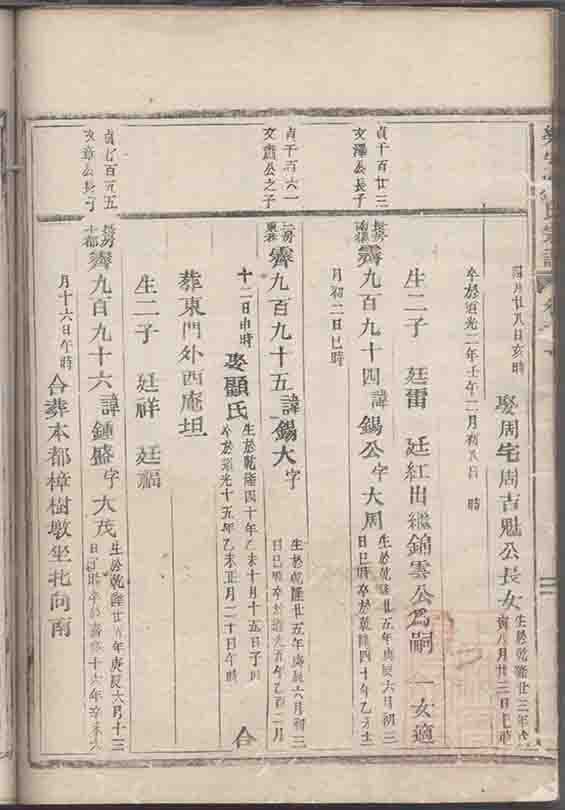 閏月廿八日亥時
娶周宅周吉魁公長女
生於乾隆廿三年戊
寅八月廿三日
卒於道光二年壬午二月初八日 時
生二子 廷雷 廷紅出繼錦雲公為嗣 一女適
貞千百廿三
文澤公長子
霽九百九十四諱錫公字大周
生於乾隆廿五年庚辰六月初三
日巳時卒於乾隆四十年乙未十
月初二日巳時
貞千百六一
文肅公之子
霽九百九十五諱錫大字
生於乾隆廿五年庚辰六月初三
日巳時卒於道光五年乙酉二月
十二日申時
娶顧氏
生於乾隆四十年乙未十月十五日子時
卒於道光十五年乙未正月二十日午時
合
葬東門外西庵坦
生二子 廷祥 廷福
文章公長子
霽九百九十六諱鍾盛字大茂
生於乾隆廿五年庚辰六月十三
卒於嘉慶十六年辛未六
月十六日午時
合葬本都樟樹墩坐北向南